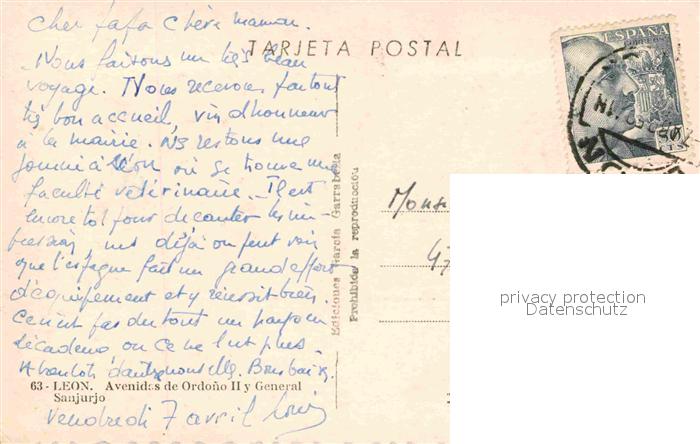 Cher papa Chère maman.
TARJETA POSTAL
Nous faisons un très beau
voyage. Nous recevons partout
très bon accueil, vin d'honneur
à la mairie. Ns restons une
journée à Léon où se trouve une
faculté vétérinaire. Il est
encore tôt pour de conter les im-
pressions, mais déjà on peut voir
que l'espagne fait un grand effort
d'équipement et y réussit bien.
Ce n'est pas du tout un pays en
décadence ou ce ne l'est plus.
A bientôt d'autres nouvelles. Bons baisers.
63 - LEON. Avenidas de Ordoño II y General
Sanjurjo
vendredi 7 avril
Ediciones García Garrabella
Prohibida la reproducción
ESPAÑA
CORREOS
PTS
Mons
47
privacy protection
Datenschutz